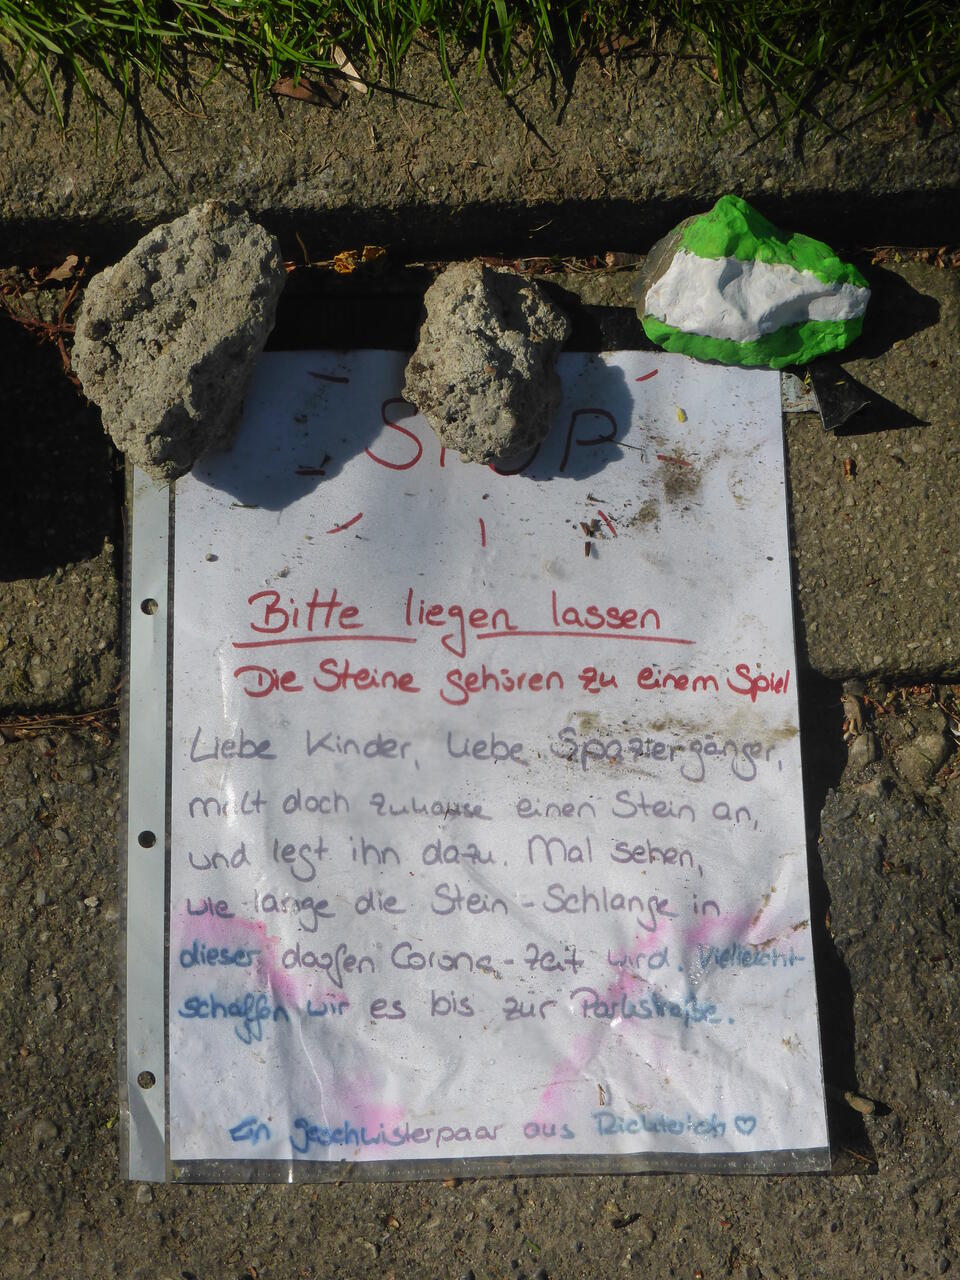 STOP
Bitte liegen lassen
Die Steine gehören zu einem Spiel
Liebe Kinder, liebe Spaziergänger,
malt doch zuhause einen Stein an,
und legt ihn dazu. Mal sehen,
wie lange die Stein-Schlange in
dieser doofen Corona-Zeit wird. Vielleicht
schaffen wir es bis zur Parkstraße.
Ein Geschwisterpaar aus Richterich ♡